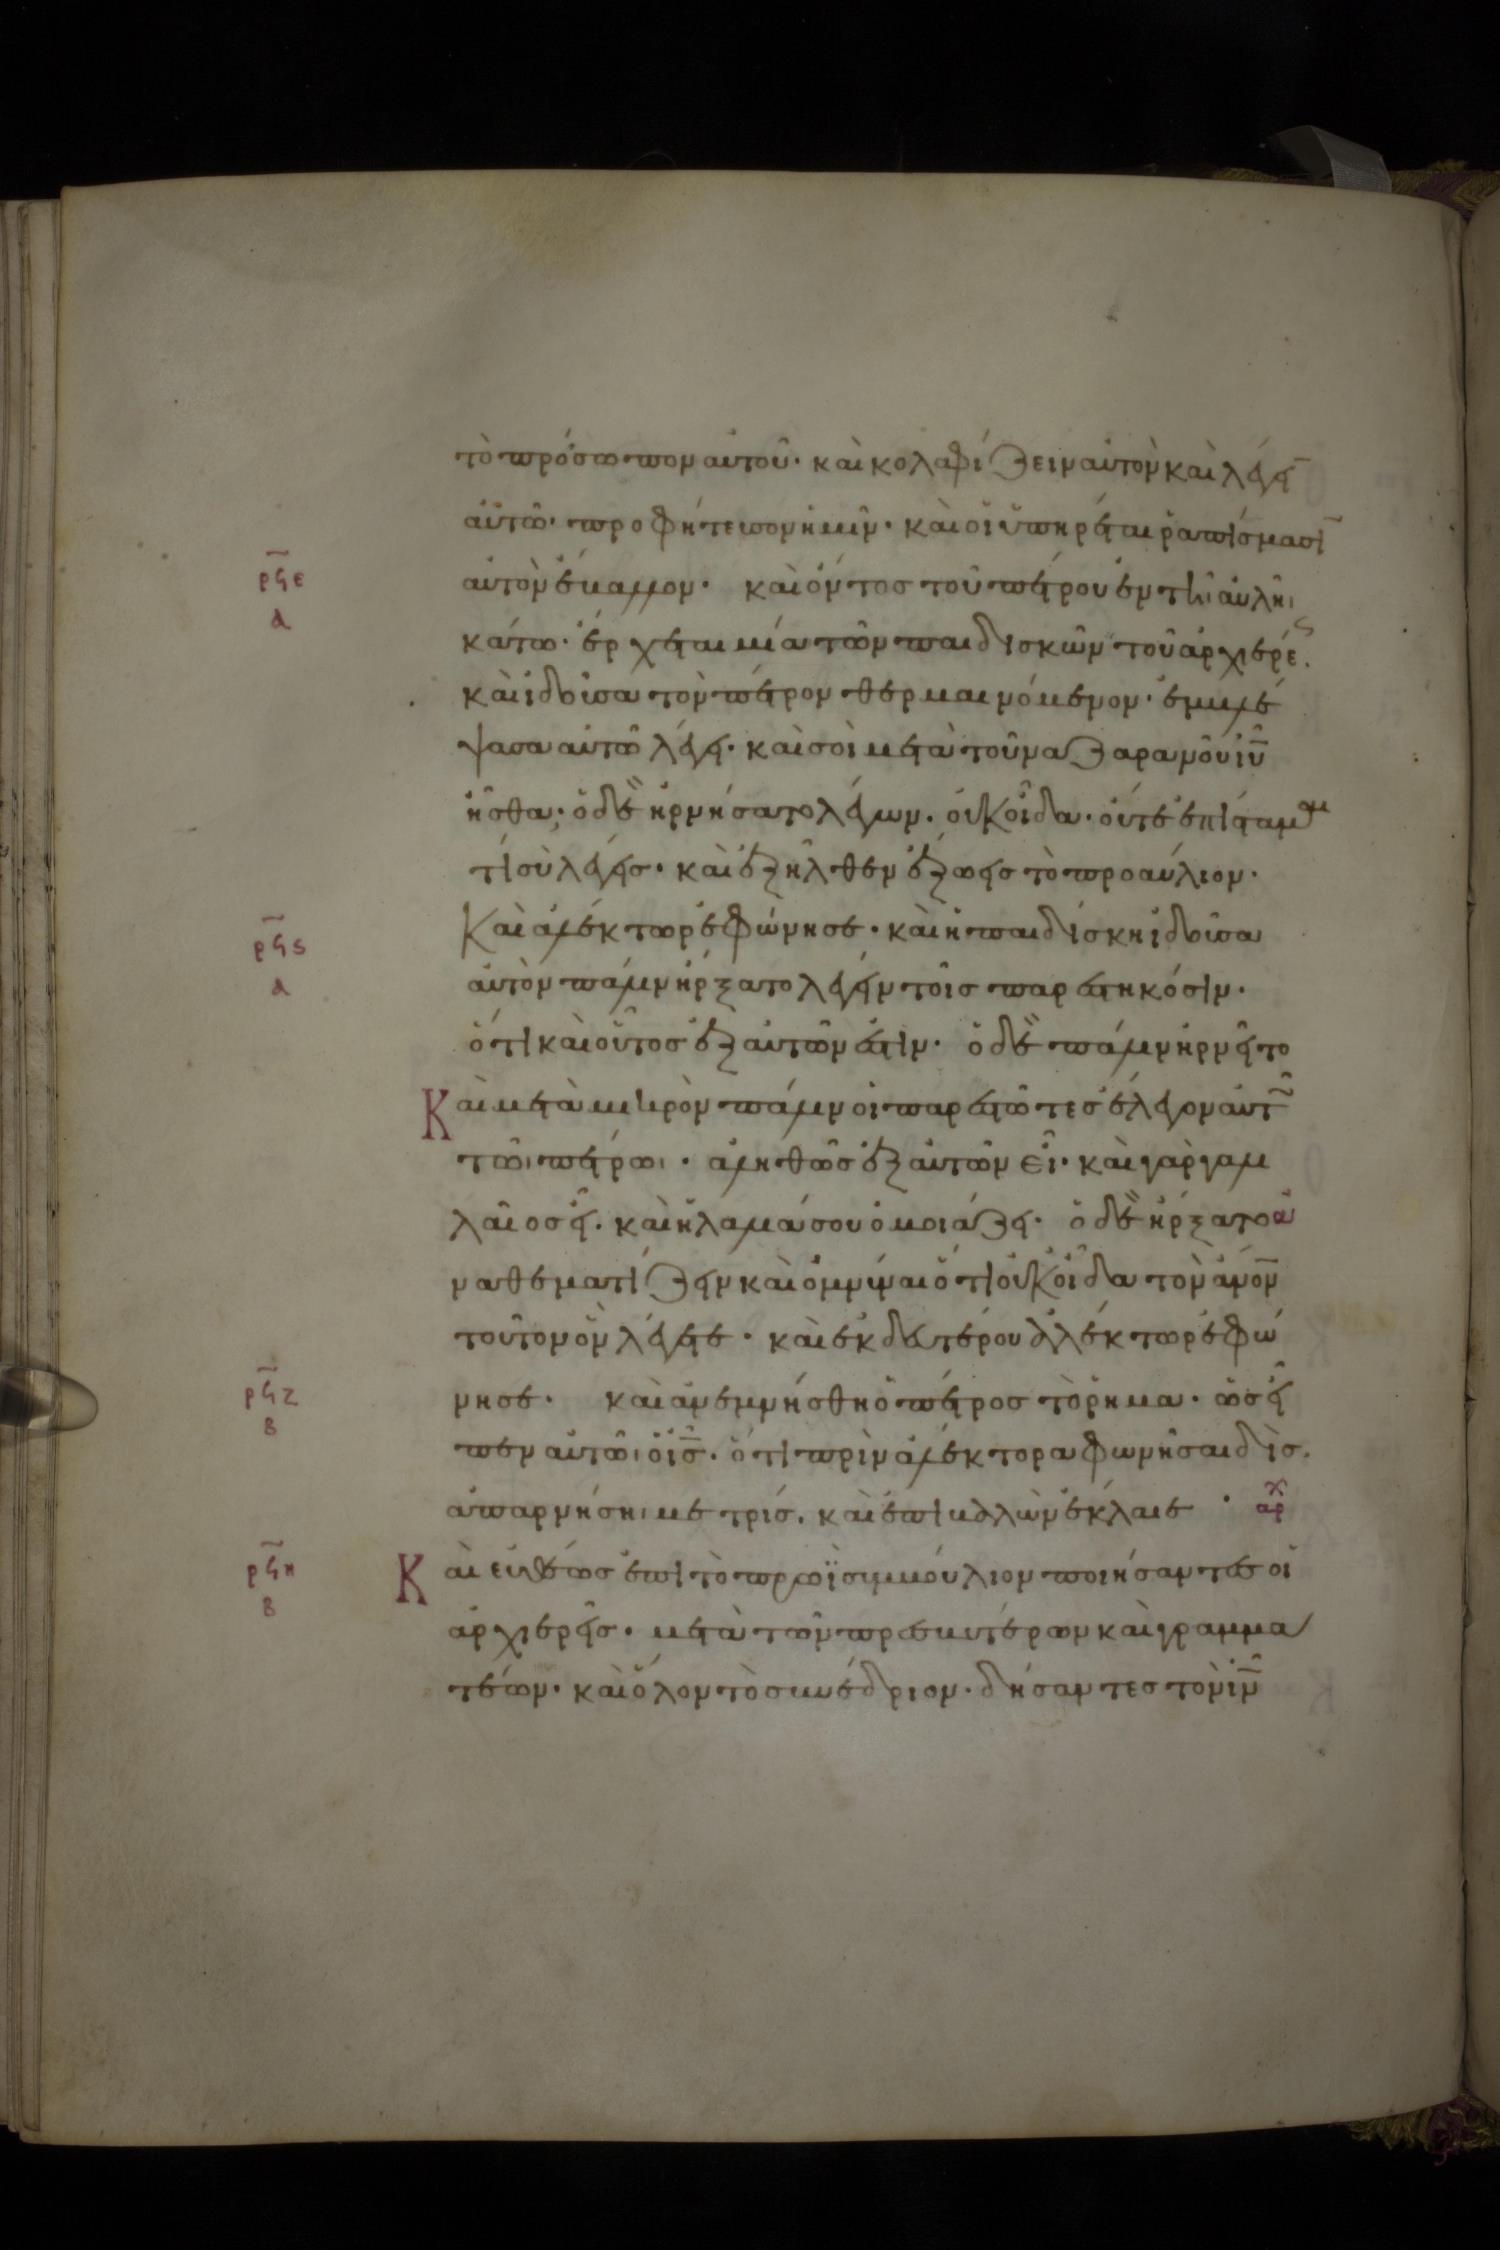 τὸ πρόσωπον αὐτοῦ· καὶ κολαφίζειν αὐτὸν καὶ λέγει̅
αὐτῶ· προφήτευσον ἡμῖν· καὶ οἱ ὑπηρέται ῥαπίσμασῑ
ρϟε αὐτὸν ἔβαλλον· καὶ ὄντος τοῦ πέτρου ἐν τῆι αὐλῆι
α κάτω· ἔρχεται μία τῶν παιδισκῶν τοῦ ἀρχιερέ.
καὶ ἰδοῦσα τὸν πέτρον θερμαινόμενον· ἐμβλέ
ψασα αὐτῶ λέγει· καὶ σοὶ μετὰ τοῦ ναζαρανοῦ ἰυ̅
ἦσθα· ὁ δὲ ἠρνήσατο λέγων· οὐκ οἶδα· οὔτε ἐπίσταμαι
τί σὺ λέγεις· καὶ ἐξῆλθεν ἔξω εἰς τὸ προαύλιον·
ρϟς Καὶ ἀλέκτωρ ἐφώνησε· καὶ ἡ παιδίσκη ἰδοῦσα
α αὐτὸν πάλιν ἤρξατο λέγειν τοῖς παρεστηκόσιν·
ὅτι καὶ οὗτος ἐξ αὐτῶν ἐστιν· ὁ δὲ πάλιν ἠρνεῖτο
Καὶ μετὰ μικρὸν πάλιν οἱ παρεστῶτες ἔλεγον αὐτ
τῶι πέτρωι· ἀληθῶς ἐξ αὐτῶν εἶ· καὶ γὰρ γαλι
λαῖος εἶ· καὶ ἡ λαλιά σου ὁμοιάζει· ὁ δὲ ἤρξατο ἀ
ναθεματίζειν καὶ ὀμνύναι ὅτι οὐκ οἶδα τὸν ἄνο̅ν
τοῦτον ὃν λέγετε· καὶ ἐκ δευτέρου ἀλέκτωρ ἐφώ
ρϟζ νησε· καὶ ἀνεμνήσθη ὁ πέτρος τὸ ῥῆμα· ὡς εἶ
β πεν αὐτῶι ὁ ἰς̅· ὅτι πρὶν ἀλέκτορα φωνῆσαι δὶς·
ἀπαρνήσηι με τρίς· καὶ ἐπιβαλὼν ἔκλαιε · αρχ
ρϟη Καὶ εὐθέως ἐπὶ τὸ πρωῒ συμβούλιον ποιήσαντες οἱ
β ἀρχιερεῖς· μετὰ τῶν πρεσβυτέρων καὶ γραμμα
τέων· καὶ ὅλον τὸ συνέδριον· δήσαντες τὸν ἰν̅